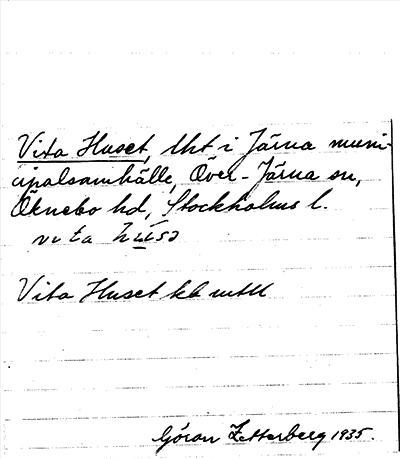 Vita Huset, lht i Järna muni-
cipalsamhälle, Över-Järna sn,
Öknebo hd, Stockholms l.
vita hu̲sə
Vita Huset kb
Göran Zetterberg 1935.